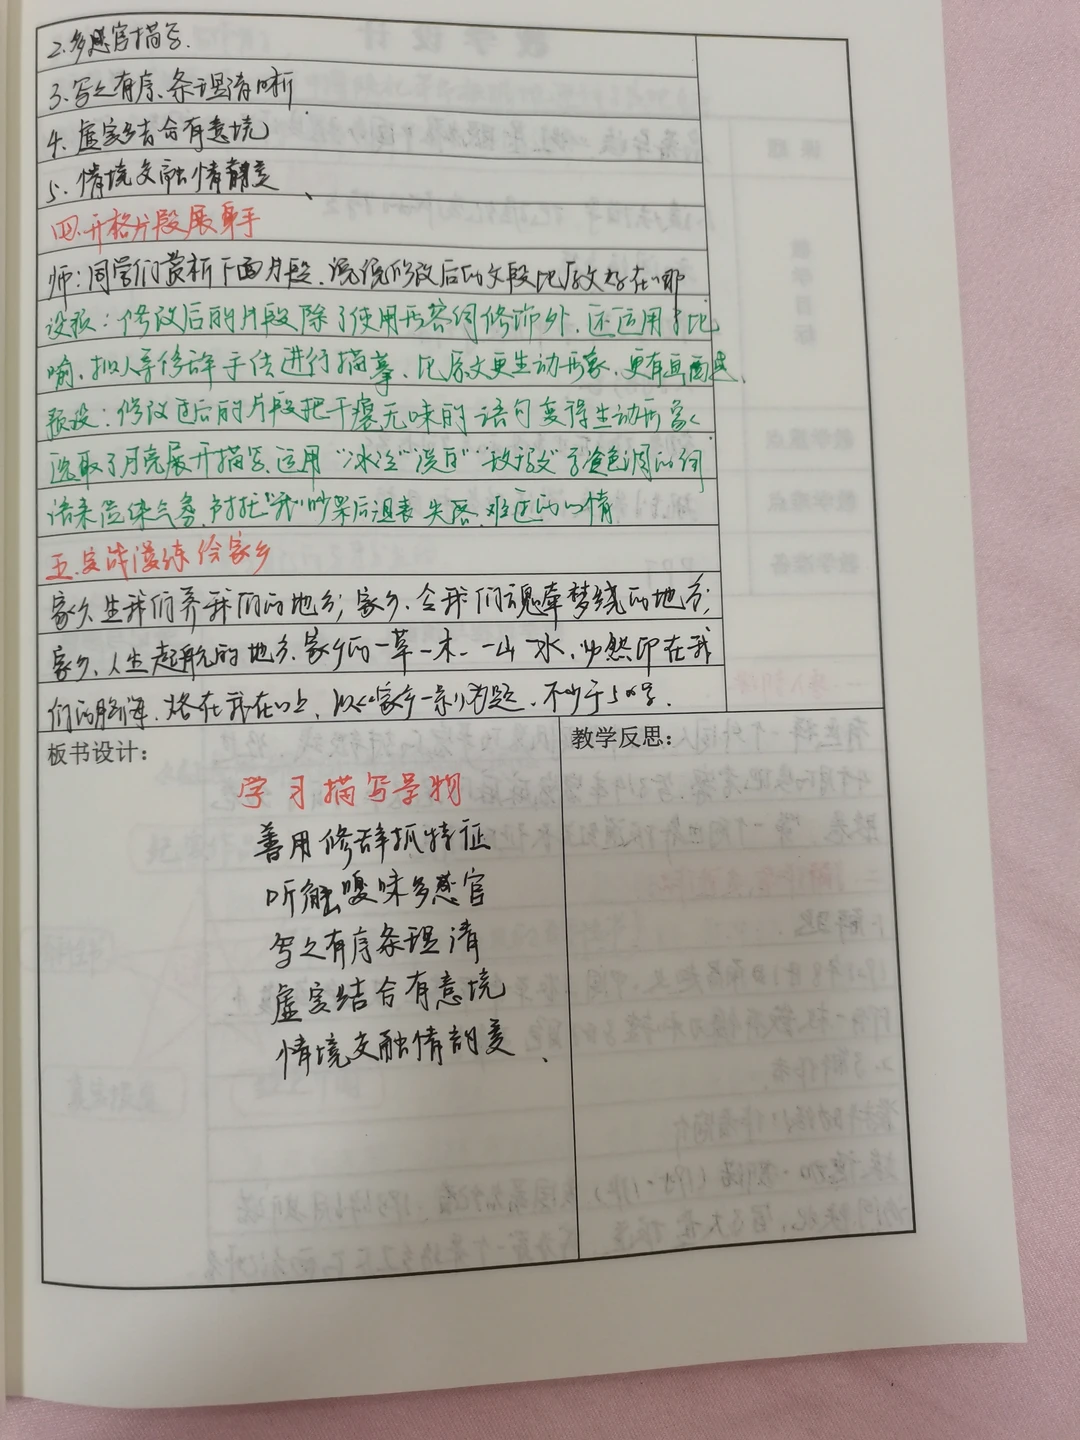 2.多感官描写.
3.写之有序、条理清晰
4.虚实结合有意境
5.情境交融情韵变
四.升格片段展身手
师:同学们赏析下面片段.说说修改后的文段比原文好在哪
设预:修改后的片段除了使用形容词修饰外.还运用了比
喻、拟人等修辞手法进行描摹、比原文更生动形象、更有画面感.
预设:修改过后的片段把干瘪无味的语句变得生动形象
选取了月亮展开描写.运用"冰冷""淡白"等冷色调的词
语来渲染气氛.衬托"我"吵架后沮丧 失落.难过的心情
五.实战演练 绘家乡
家乡.生我们养我们的地方;家乡.令我们魂牵梦绕的地方;
家乡、人生起航的地方.家乡的一草一木.一山一水.必然印在我
们的脑海.烙在我在心上.以《家乡一景》为题.不少于500字.
板书设计:
教学反思:
学习描写景物
善用修辞抓特征
听触嗅味多感官
写之有序条理清
虚实结合有意境
情境交融情韵变